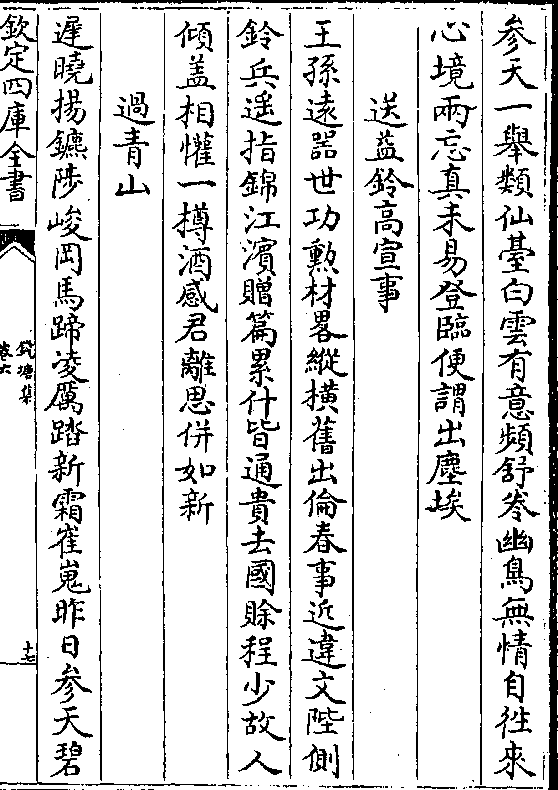 参天一舉類仙臺白雲有意頻舒卷幽鳥無情自徃來
心境兩忘真未易登臨便謂出塵埃
送益鈐高宣事
王孫遠器世功勲材畧縱横舊出倫春事近違文陛側
鈴兵遥指錦江濱贈篇累什皆通貴去國賖程少故人
傾盖相懽一樽酒感君離思併如新
過青山
遲曉揚鑣陟峻岡馬蹄凌厲踏新霜崔嵬昨日参天碧
欽定四庫全書
錢塘集
卷六
十七